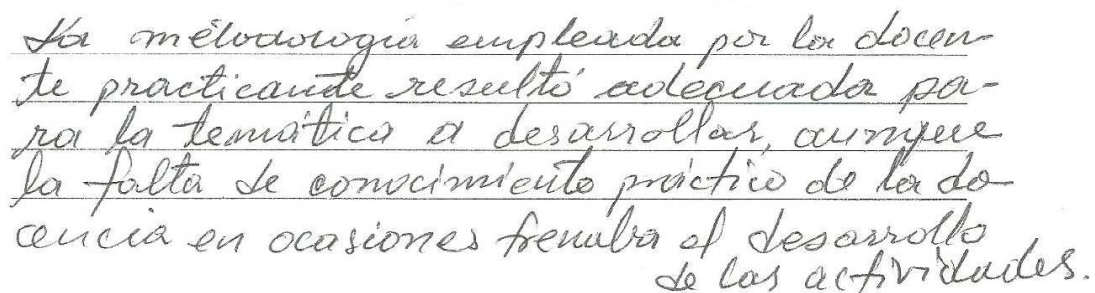 La metodología empleada por la docen-
te practicante resultó adecuada pa-
ra la temática a desarrollar, aunque
la falta de conocimiento práctico de la do
cencia en ocasiones frenaba el desarrollo
de las actividades.